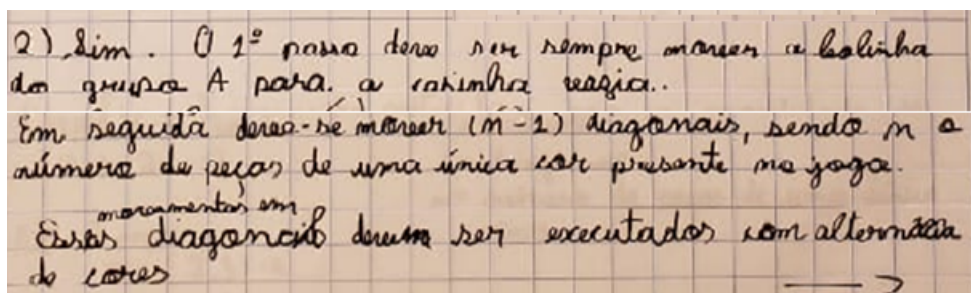 2) Sim. O 1º passo deve ser sempre mover a bolinha
do grupo A para. a casinha vazia..
Em seguida deve-se mover (n-1) diagonais, sendo n o
número de peças de uma única cor presente no jogo.
movimentos em
Essas diagonais devem ser executados com alternância
de cores